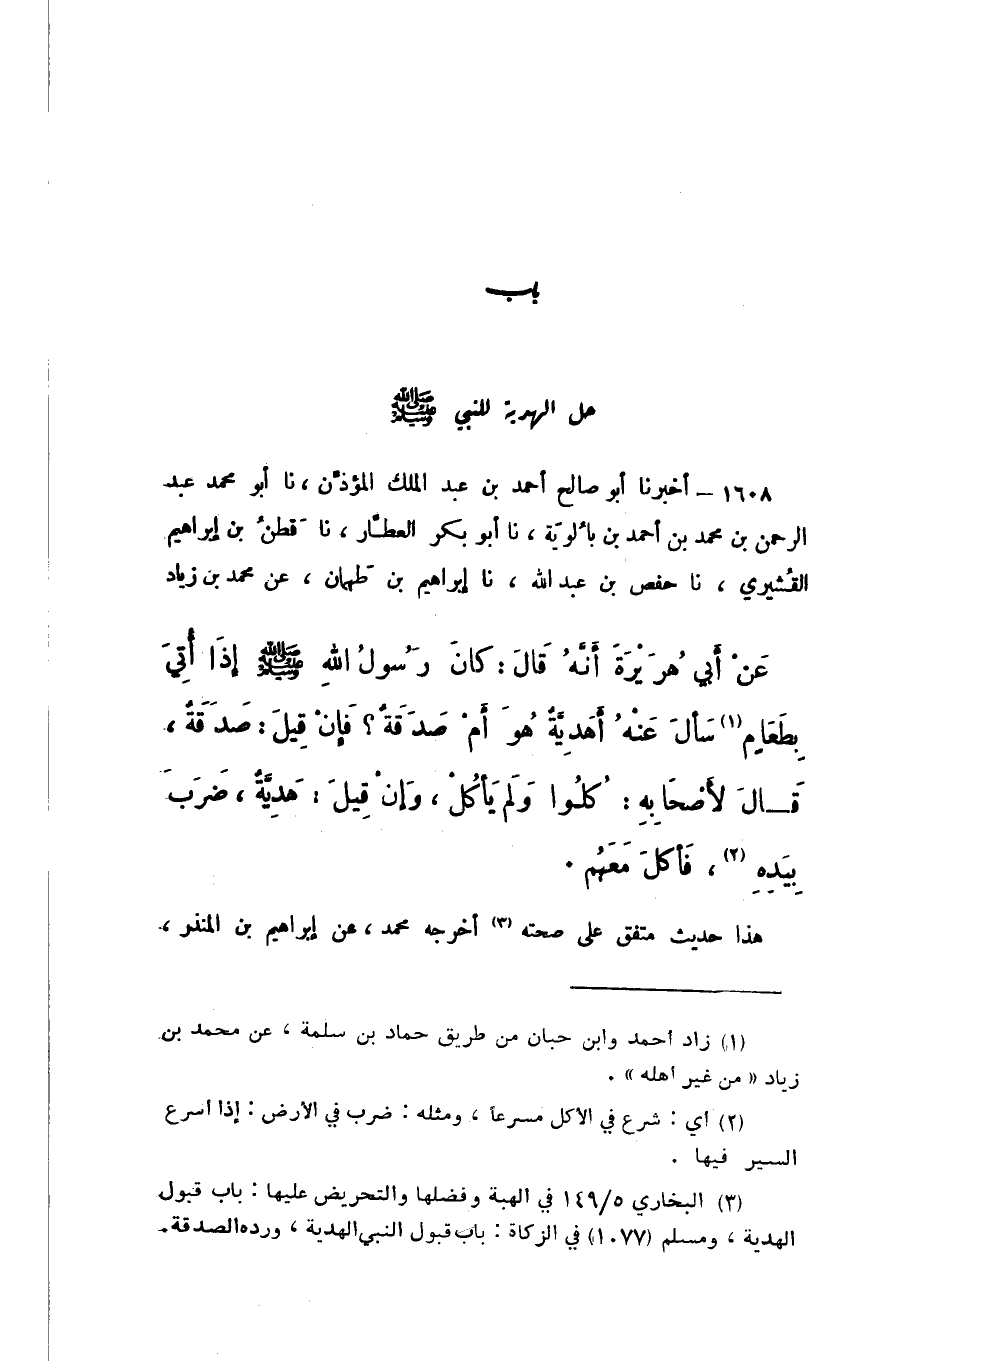 باب
حل الهدية للنبي ﷺ
١٦٠٨ – أخبرنا أبو صالح أحمد بن عبد الملك المؤذّن ، نا أبو محمد عبد
الرحمن بن محمد بن أحمد بن بالُويَة ، نا أبو بكر العطَّار ، نا قَطنُ بن إبراهيم
القُشيري ، نا حفص بن عبد الله ، نا إبراهيم بن طَهمان ، عن محمد بن زياد
عَنْ أَبي هُرَيْرَةَ أَنَّهُ قَالَ : كَانَ رَسُولُ اللهِ ﷺ إِذَا أُتِيَ
بِطَعَامٍ (١) سَأَلَ عَنْهُ أَهَدِيَّةٌ هُوَ أَمْ صَدَقَةٌ ؟ فَإِنْ قِيلَ : صَدَقَةٌ ،
قَـــالَ لأَصْحَابِهِ : كُلُوا وَلَم يَأكُلْ ، وَإِنْ قِيلَ : هَدِيَّةٌ ، ضَرَبَ
بِيَدِهِ (٢) ، فَأَكَلَ مَعَهُم .
هذا حديث متفق على صحته (٣) أخرجه محمد ، عن إبراهيم بن المنذر ،
(١) زاد أحمد وابن حبان من طريق حماد بن سلمة ، عن محمد بن
زياد « من غير أهله » .
(٢) أي : شرع في الأكل مسرعاً ، ومثله : ضرب في الأرض : إذا أسرع
السير فيها .
(٣) البخاري ١٤٩/٥ في الهبة وفضلها والتحريض عليها : باب قبول
الهدية ، ومسلم (١٠٧٧) في الزكاة : باب قبول النبي الهدية ، ورده الصدقة .